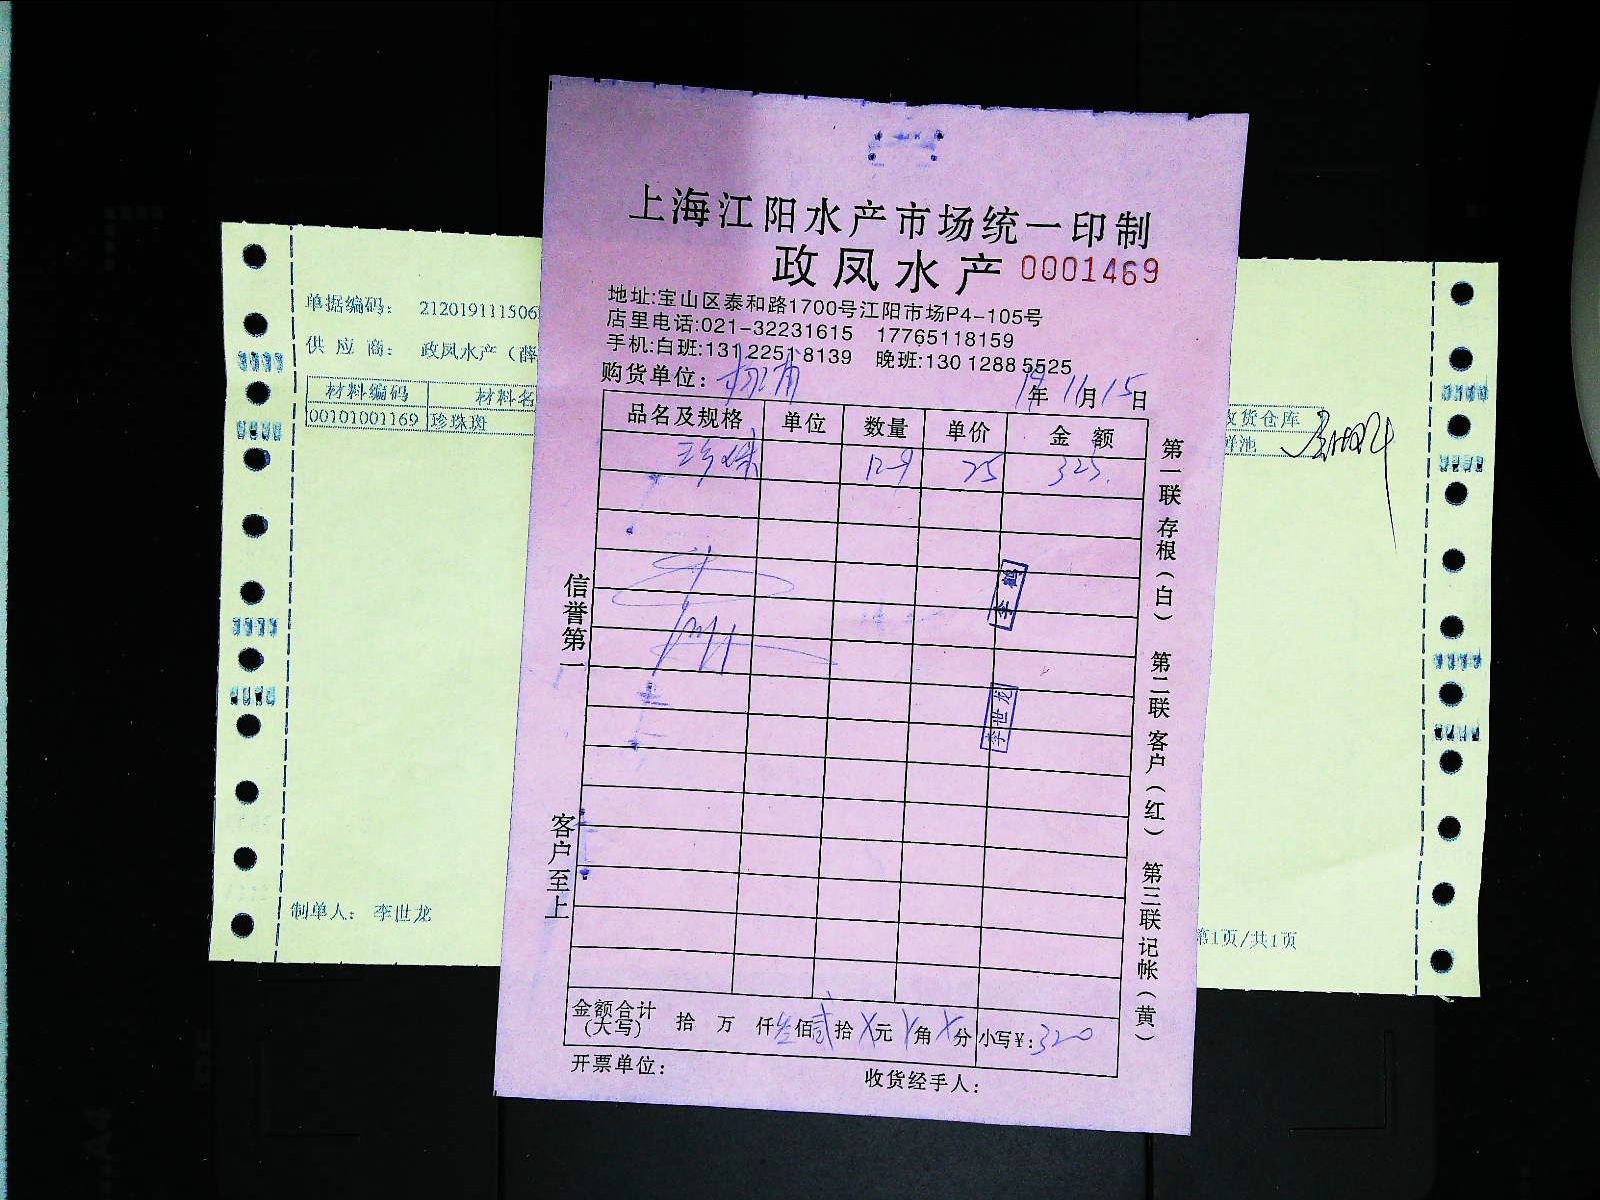 上海江阳水产市场统一印制
政凤水产 0001469
地址:宝山区泰和路1700号江阳市场P4-105号
店里电话:021-32231615 17765118159
手机:白班:131 2251 8139 晚班:130 1288 5525
购货单位: 杨浦 19年11月15日
品名及规格 单位 数量 单价 金额
珍珠 12.9 25 323.
李世龙
信誉第一
客户至上
第一联存根(白) 第二联客户(红) 第三联记帐(黄)
金额合计(大写) 拾 万 仟叁佰贰拾X元X角X分 小写¥:320
开票单位: 收货经手人:
单据编码: 212019111506
供应商: 政凤水产(薛
材料编码 材料名
00101001169 珍珠斑
制单人: 李世龙
收货仓库
鲜池
第1页/共1页